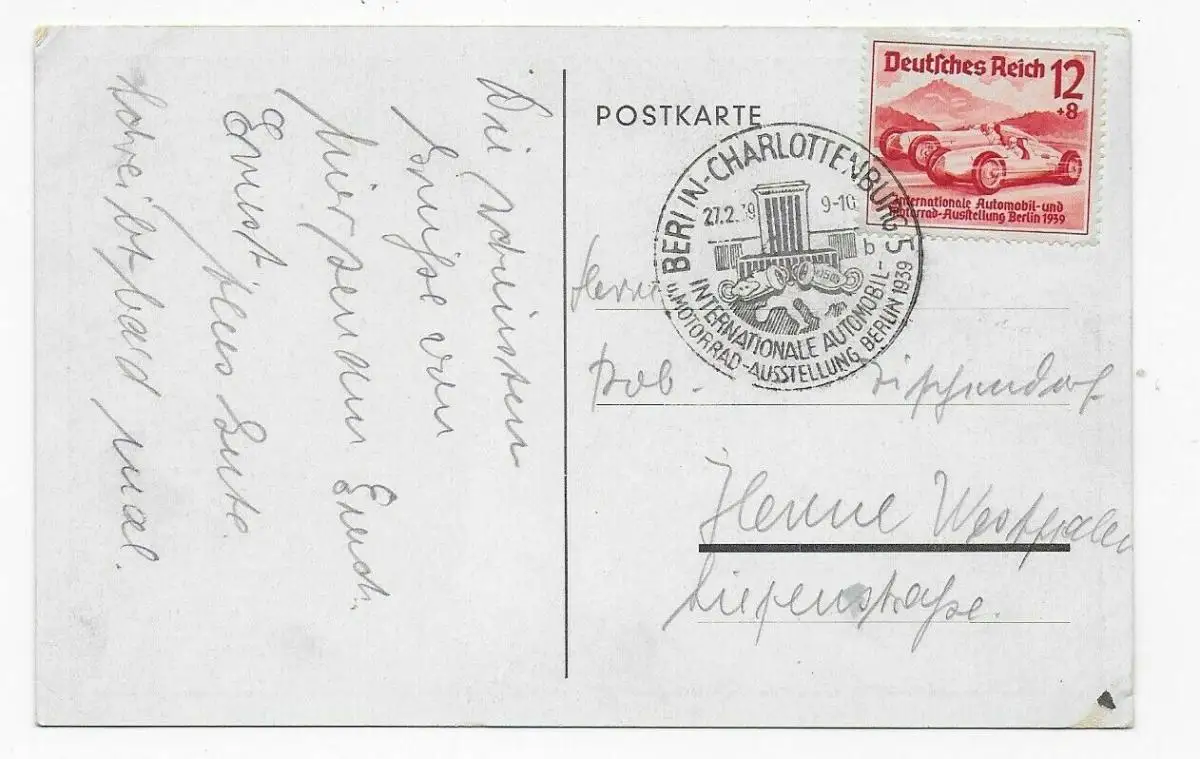 Die schönsten
Grüße von
hier senden Euch.
Ernst
Alles Gute.
Schreibt bald mal.
POSTKARTE
Deutsches Reich 12
+8
Internationale Automobil-und
Motorrad-Ausstellung Berlin 1939
BERLIN-CHARLOTTENBURG 5
27.2.39 9-10
b
INTERNATIONALE AUTOMOBIL-
u. MOTORRAD-AUSSTELLUNG BERLIN 1939
Herrn
Rob. Tischendorf
Herne Westfalen